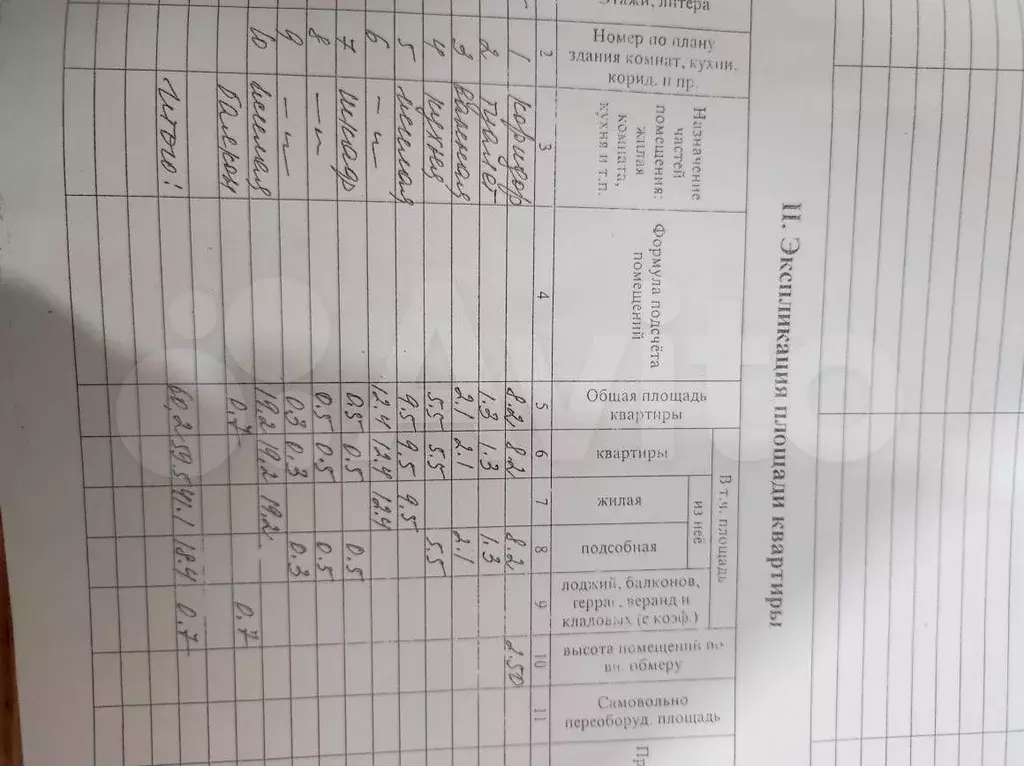 II. Экспликация площади квартиры
Этажи, литера
Номер по плану здания комнат, кухни, корид. и пр.
Назначение частей помещения: жилая комната, кухня и т.п.
Формула подсчёта помещений
Общая площадь квартиры
В т.ч. площадь
квартиры
из неё
жилая
подсобная
лоджий, балконов, террас, веранд и кладовых (с коэф.)
высота помещений по вн. обмеру
Самовольно переоборуд. площадь
Пр
2 3 4 5 6 7 8 9 10 11
1 коридор 8.2 8.2 8.2 2.50
2 туалет 1.3 1.3 1.3
3 ванная 2.1 2.1 2.1
4 кухня 5.5 5.5 5.5
5 жилая 9.5 9.5 9.5
6 – " – 12.4 12.4 12.4
7 шкаф 0.5 0.5 0.5
8 – " – 0.5 0.5 0.5
9 – " – 0.3 0.3 0.3
10 жилая 19.2 19.2 19.2 –
Балкон 0.7 0.7
Итого: 60,2 59.5 41.1 18.4 0.7
Avito